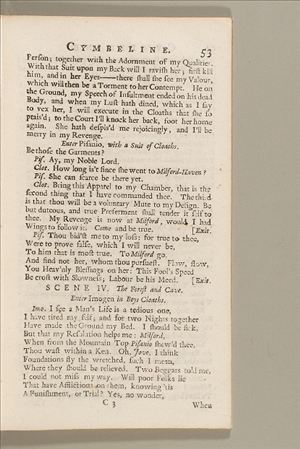 CYMBELINE. 53
Person; together with the Adornment of my Qualities.
With that Suit upon my Back will I ravish her; first kill
him, and in her Eyes—there shall she see my Valour,
which will then be a Torment to her Contempt. He on
the Ground, my Speech of Insultment ended on his dead
Body, and when my Lust hath dined, which as I say
to vex her, I will execute in the Cloaths that she so
prais'd; to the Court I'll knock her back, foot her home
again. She hath despis'd me rejoicingly, and I'll be
merry in my Revenge.
Enter Pisanio, with a Suit of Cloaths.
Be those the Garments?
Pis. Ay, my Noble Lord.
Clot. How long is't since she went to Milford-Haven?
Pis. She can scarce be there yet.
Clot. Bring this Apparel to my Chamber, that is the
second thing that I have commanded thee. The third
is that thou will be a voluntary Mute to my Design. Be
but duteous, and true Preferment shall tender it self to
thee. My Revenge is now at Milford, would I had
Wings to follow it. Come and be true. [Exit.
Pis. Thou bid'st me to my loss; for true to thee,
Were to prove false, which I will never be,
To him that is most true. To Milford go,
And find not her, whom thou pursuest. Flow, flow,
You Heav'nly Blessings on her: This Fool's Speed
Be crost with Slowness; Labour be his Meed. [Exit.
SCENE IV. The Forest and Cave.
Enter Imogen in Boys Cloaths.
Imo. I see a Man's Life is a tedious one,
I have tired my self; and for two Nights together
Have made the Ground my Bed. I should be sick,
But that my Resolution helps me: Milford,
When from the Mountain Top Pisanio shew'd thee,
Thou wast within a Ken. Oh, Jove, I think
Foundations fly the wretched, such I mean,
Where they should be relieved. Two Beggars told me,
I could not miss my way. Will poor Folks lie
That have Afflictions on them, knowing 'tis
A Punishment, or Trial? Yes, no wonder,
C 3 When